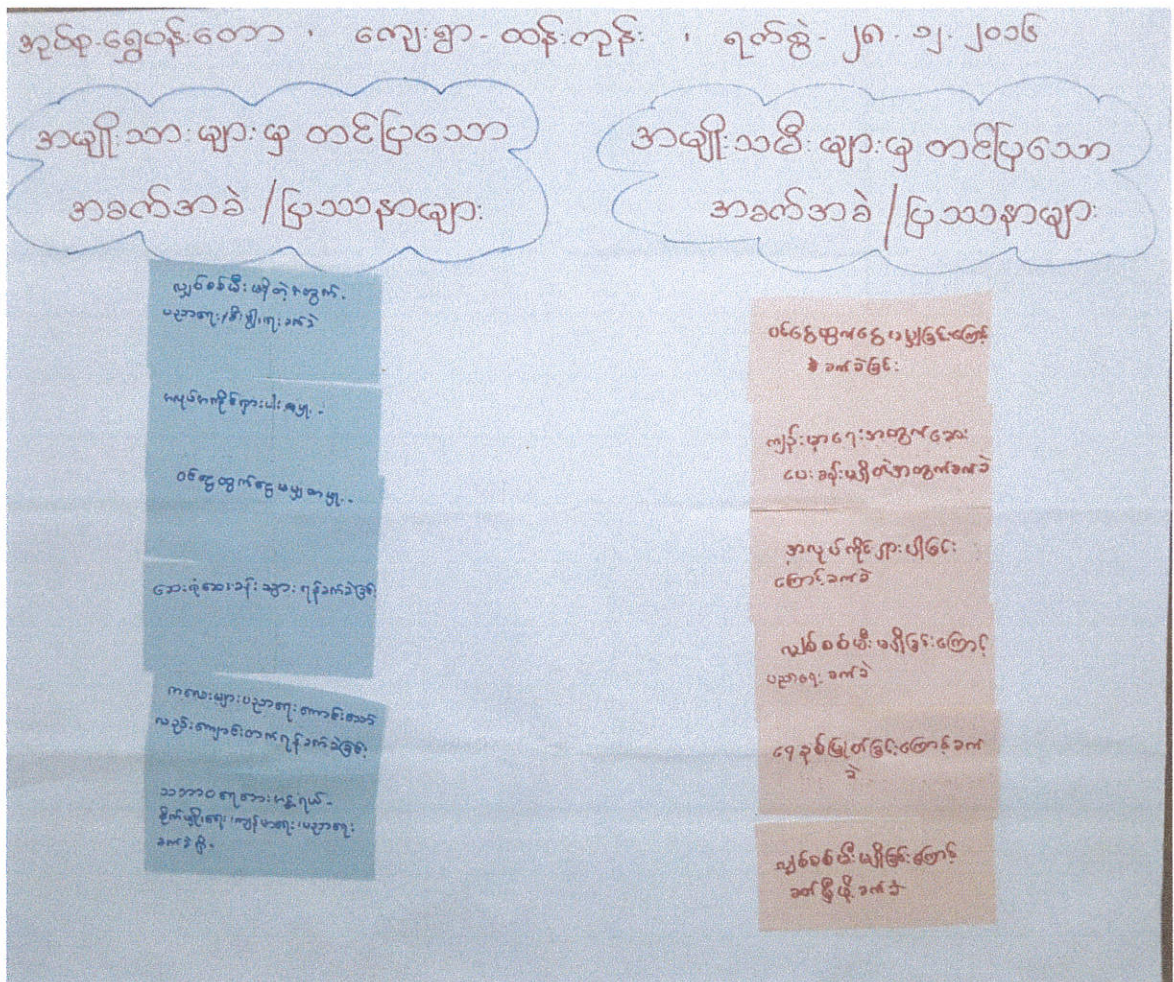 အုပ်စု-ရွှေပန်းတော ၊ ကျေးရွာ-ထန်းတုန်း ၊ ရက်စွဲ-၂၈.၁၂.၂၀၁၆
အမျိုးသားများမှ တင်ပြသော
အခက်အခဲ/ပြဿနာများ
လျှပ်စစ်မီးမရှိတဲ့အတွက်
ပညာရေး/စီးပွါးရေးခက်ခဲ
အလုပ်အကိုင်ရှားပါးမှု.
ဝင်ငွေထွက်ငွေမမျှတမှု.
ဆေးရုံဆေးခန်းသွားရန်ခက်ခဲခြင်း
ကလေးများပညာရေးကောင်းသော်
လည်းကျောင်းတက်ရန်ခက်ခဲခြင်း
သဘာဝဘေးအန္တရာယ်-
စိုက်ပျိုးရေး၊ကျန်းမာရေး၊ပညာရေး
ခက်ခဲ
အမျိုးသမီးများမှ တင်ပြသော
အခက်အခဲ/ပြဿနာများ
ဝင်ငွေထွက်ငွေမမျှခြင်းကြောင့်
ခက်ခဲခြင်း
ကျန်းမာရေးအတွက်ဆေး
ပေးခန်းမရှိတဲ့အတွက်ခက်ခဲ
အလုပ်ကိုင်ရှားပါခြင်း
ကြောင့်ခက်ခဲ
လျှပ်စစ်မီးမရှိခြင်းကြောင့်
ပညာရေးခက်ခဲ
ရေနစ်မြုတ်ခြင်းကြောင့်ခက်
ခဲ
လျှပ်စစ်မီးမရှိခြင်းကြောင့်
ခက်ခဲ